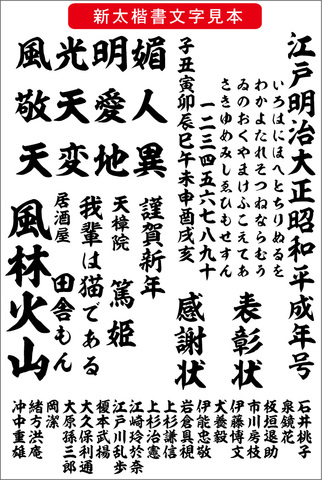 新太楷書文字見本
江戸明治大正昭和平成年号
いろはにほへとちりぬるを
わかよたれそつねならむう
ゐのおくやまけふこえてあ
さきゆめみしゑひもせすん
一二三四五六七八九十
子丑寅卯辰巳午未申酉戌亥
風光明媚
敬天愛人
天変地異
表彰状
感謝状
謹賀新年
天樟院
篤姫
我輩は猫である
居酒屋
田舎もん
風林火山
石井桃子
泉鏡花
板垣退助
市川房枝
伊藤博文
犬養毅
伊能忠敬
岩倉具視
上杉謙信
上杉治憲
江崎玲於奈
江戸川乱歩
榎本武揚
大久保利通
大原孫三郎
岡潔
緒方洪庵
沖中重雄